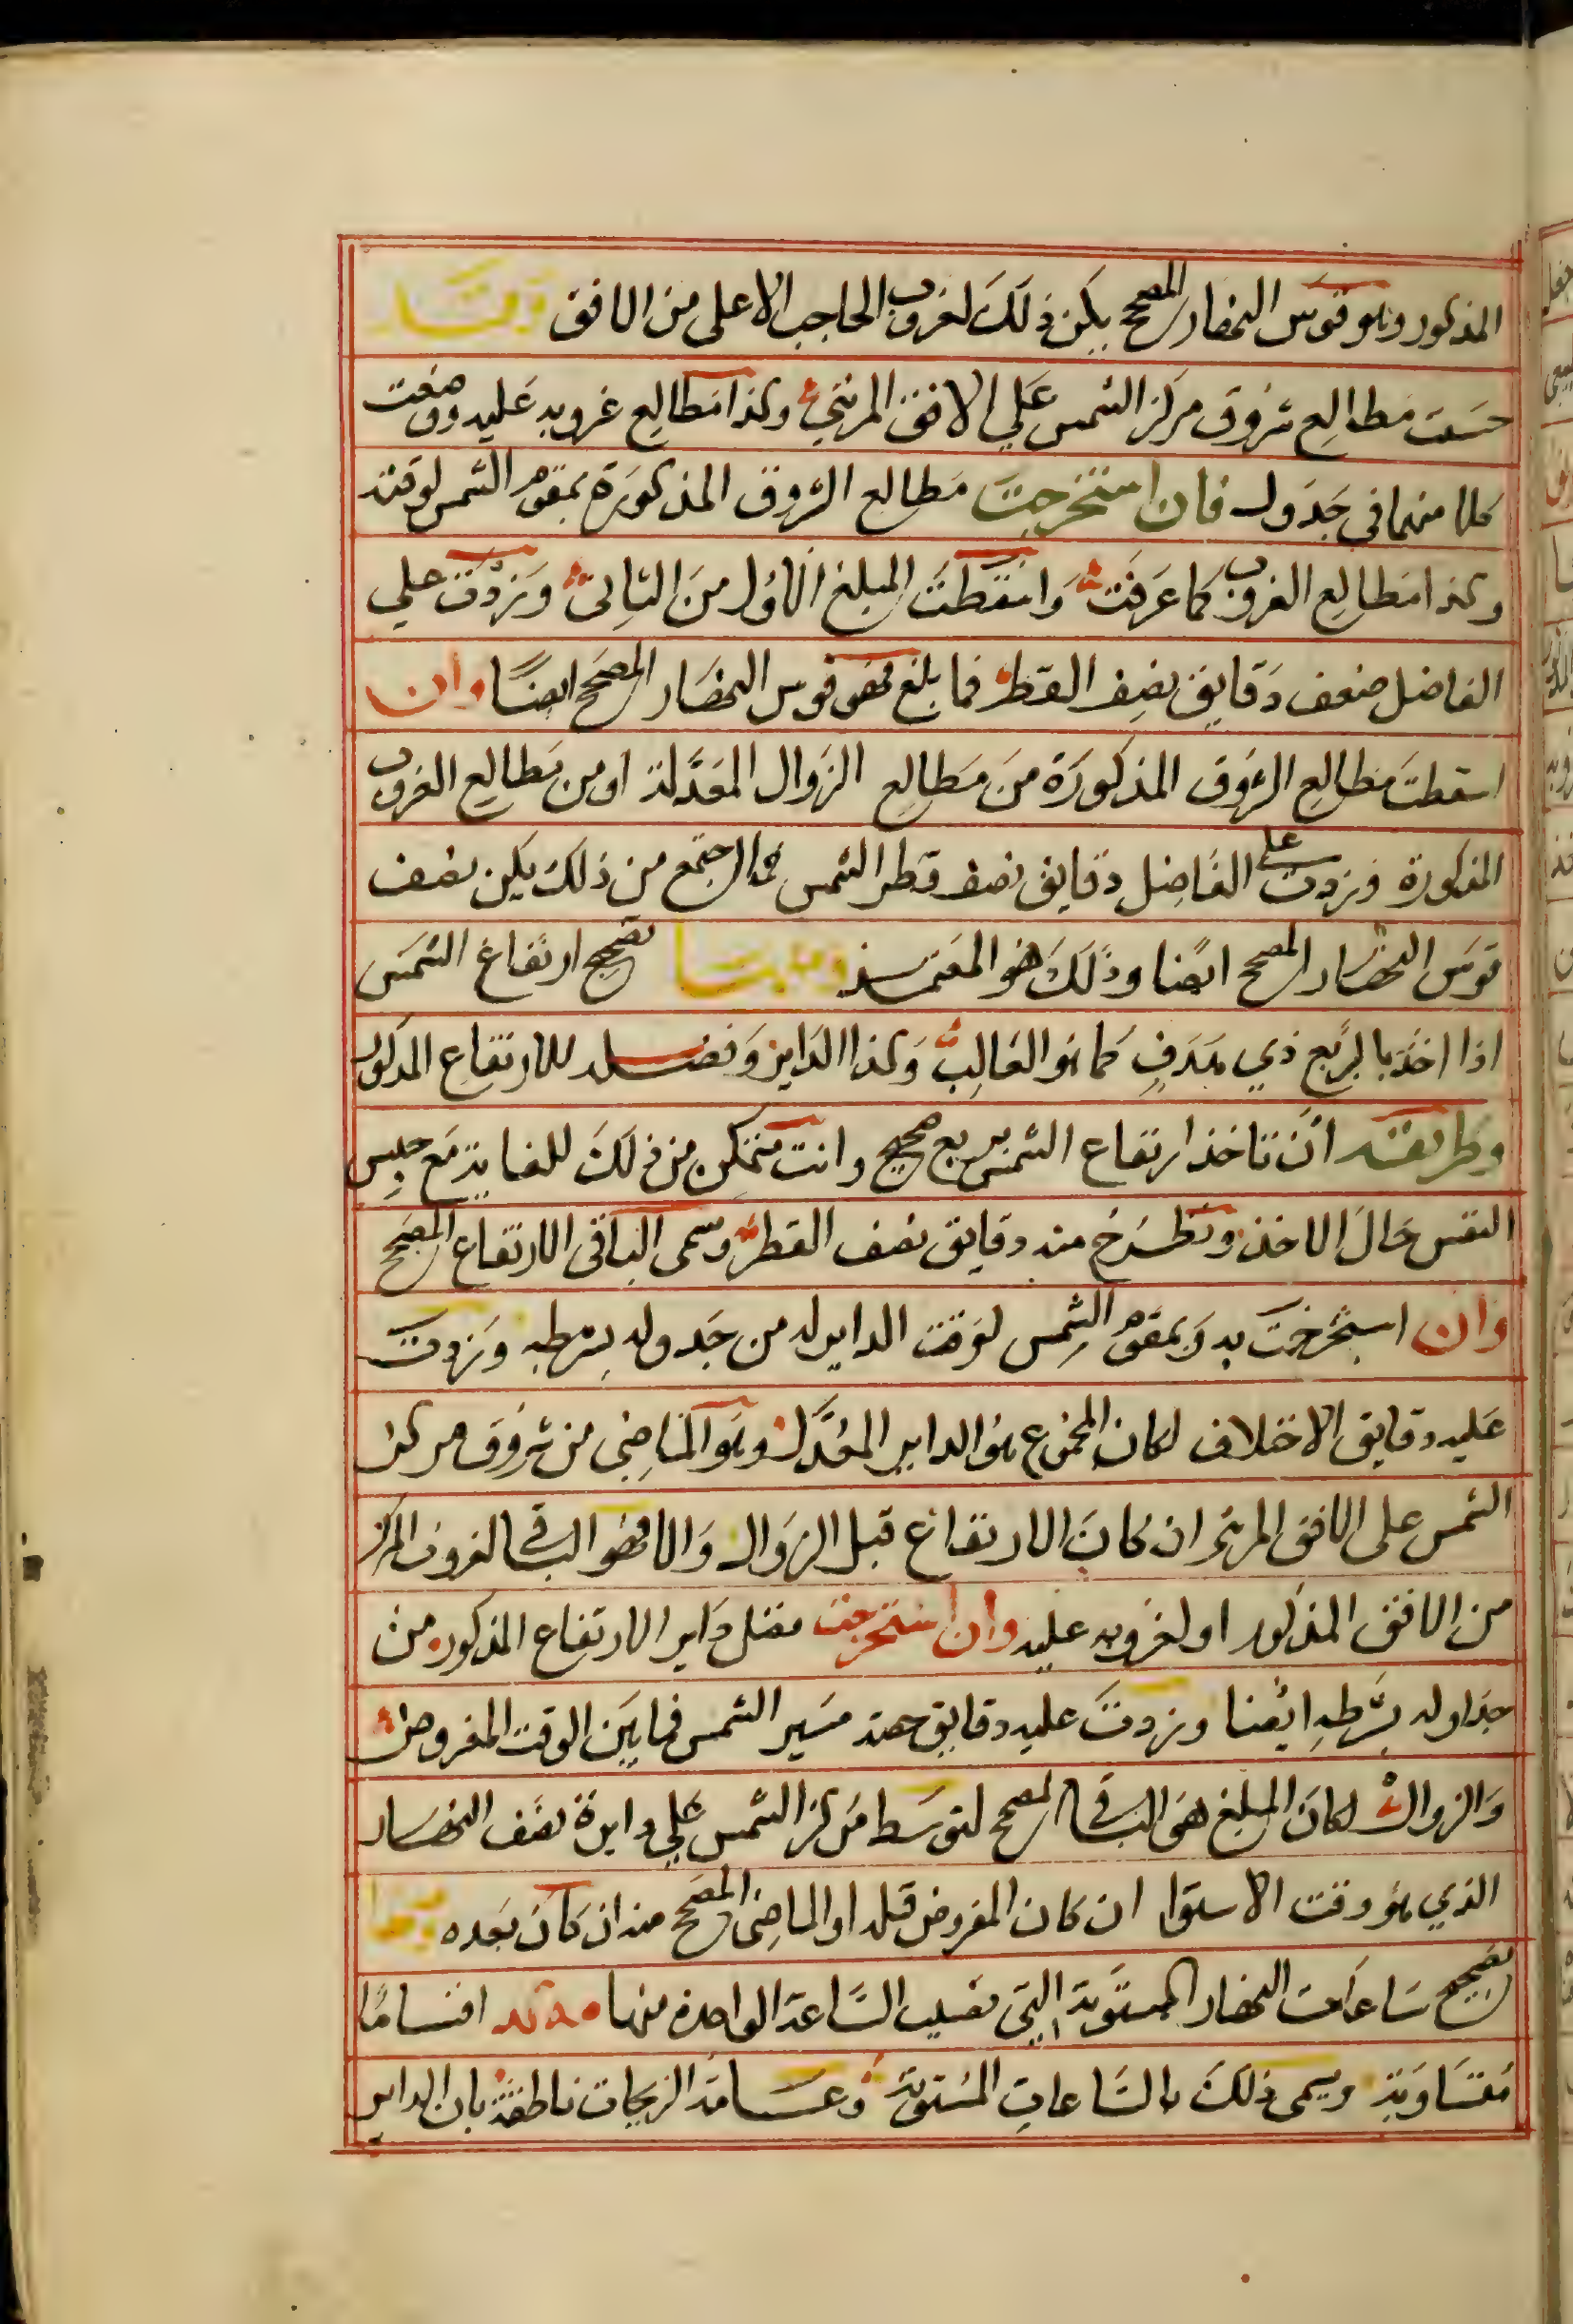 المذكور وهو قوس النهار المصحح يكن ذلك لغروب الحاجب الاعلى من الافق وقد
حسبت مطالع شروق مركز الشمس على الافق المرئي وكذا مطالع غروبه عليه ووضعت
كلا منهما في جدول فان استخرجت مطالع الشروق المذكورة بمقوم الشمس لوقته
وكذا مطالع الغروب كما عرفت واسقطت المبلغ الاول من الثاني وزدت على
الفاضل ضعف دقايق نصف القطر فما بلغ فهو قوس النهار المصحح ايضا وان
اسقطت مطالع الشروق المذكورة من مطالع الزوال المعدلة او من مطالع الغروب
المذكورة وزدت على الفاضل دقايق نصف قطر الشمس فما اجتمع من ذلك يكن نصف
قوس النهار المصحح ايضا وذلك هو المعتمد ومنها تصحيح ارتفاع الشمس
اذا اخذ بالربع ذي هدف كما هو الغالب وكذا الداير وفضله للارتفاع المذكور
وطريقته ان تاخذ ارتفاع الشمس بربع صحيح وانت متمكن من ذلك للغاية مع حبس
النفس حال الاخذ وتطرح منه دقايق نصف القطر وسمى الباقي الارتفاع المصحح
وان استخرجت به وبمقوم الشمس لوقت الداير له من جدوله بشرطه وزدت
عليه دقايق الاختلاف لكان المجموع هو الداير المعدل وهو الماضي من شروق مركز
الشمس على الافق المرئي ان كان الارتفاع قبل الزوال والا فهو الباقي لغروب المركز
من الافق المذكور او لغروبه عليه وان استخرجت فضل داير الارتفاع المذكور من
جداوله بشرطه ايضا وزدت عليه دقايق حصة مسير الشمس فيما بين الوقت المفروض
والزوال لكان المبلغ هو الباقي المصحح لتوسط مركز الشمس على دايرة نصف النهار
الذي هو وقت الاستوا ان كان المفروض قبله او الماضي المصحح منه ان كان بعده ومنها
تصحيح ساعات النهار المستوية التي نصيب الساعة الواحدة منها اقساما
متساوية ويسمى ذلك بالساعات المستوية وعامة الزيجات ناطقة بان الداير